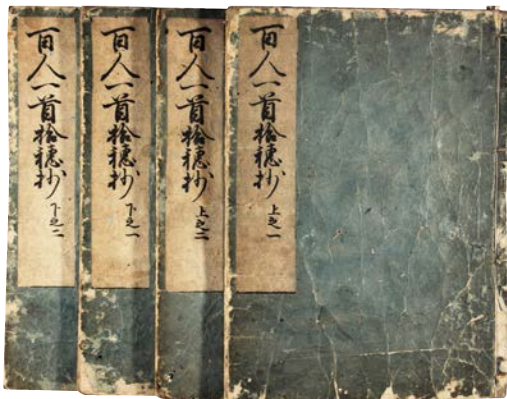 百人一首拾穂抄 上之一
百人一首拾穂抄 上之二
百人一首拾穂抄 下之一
百人一首拾穂抄 下之二